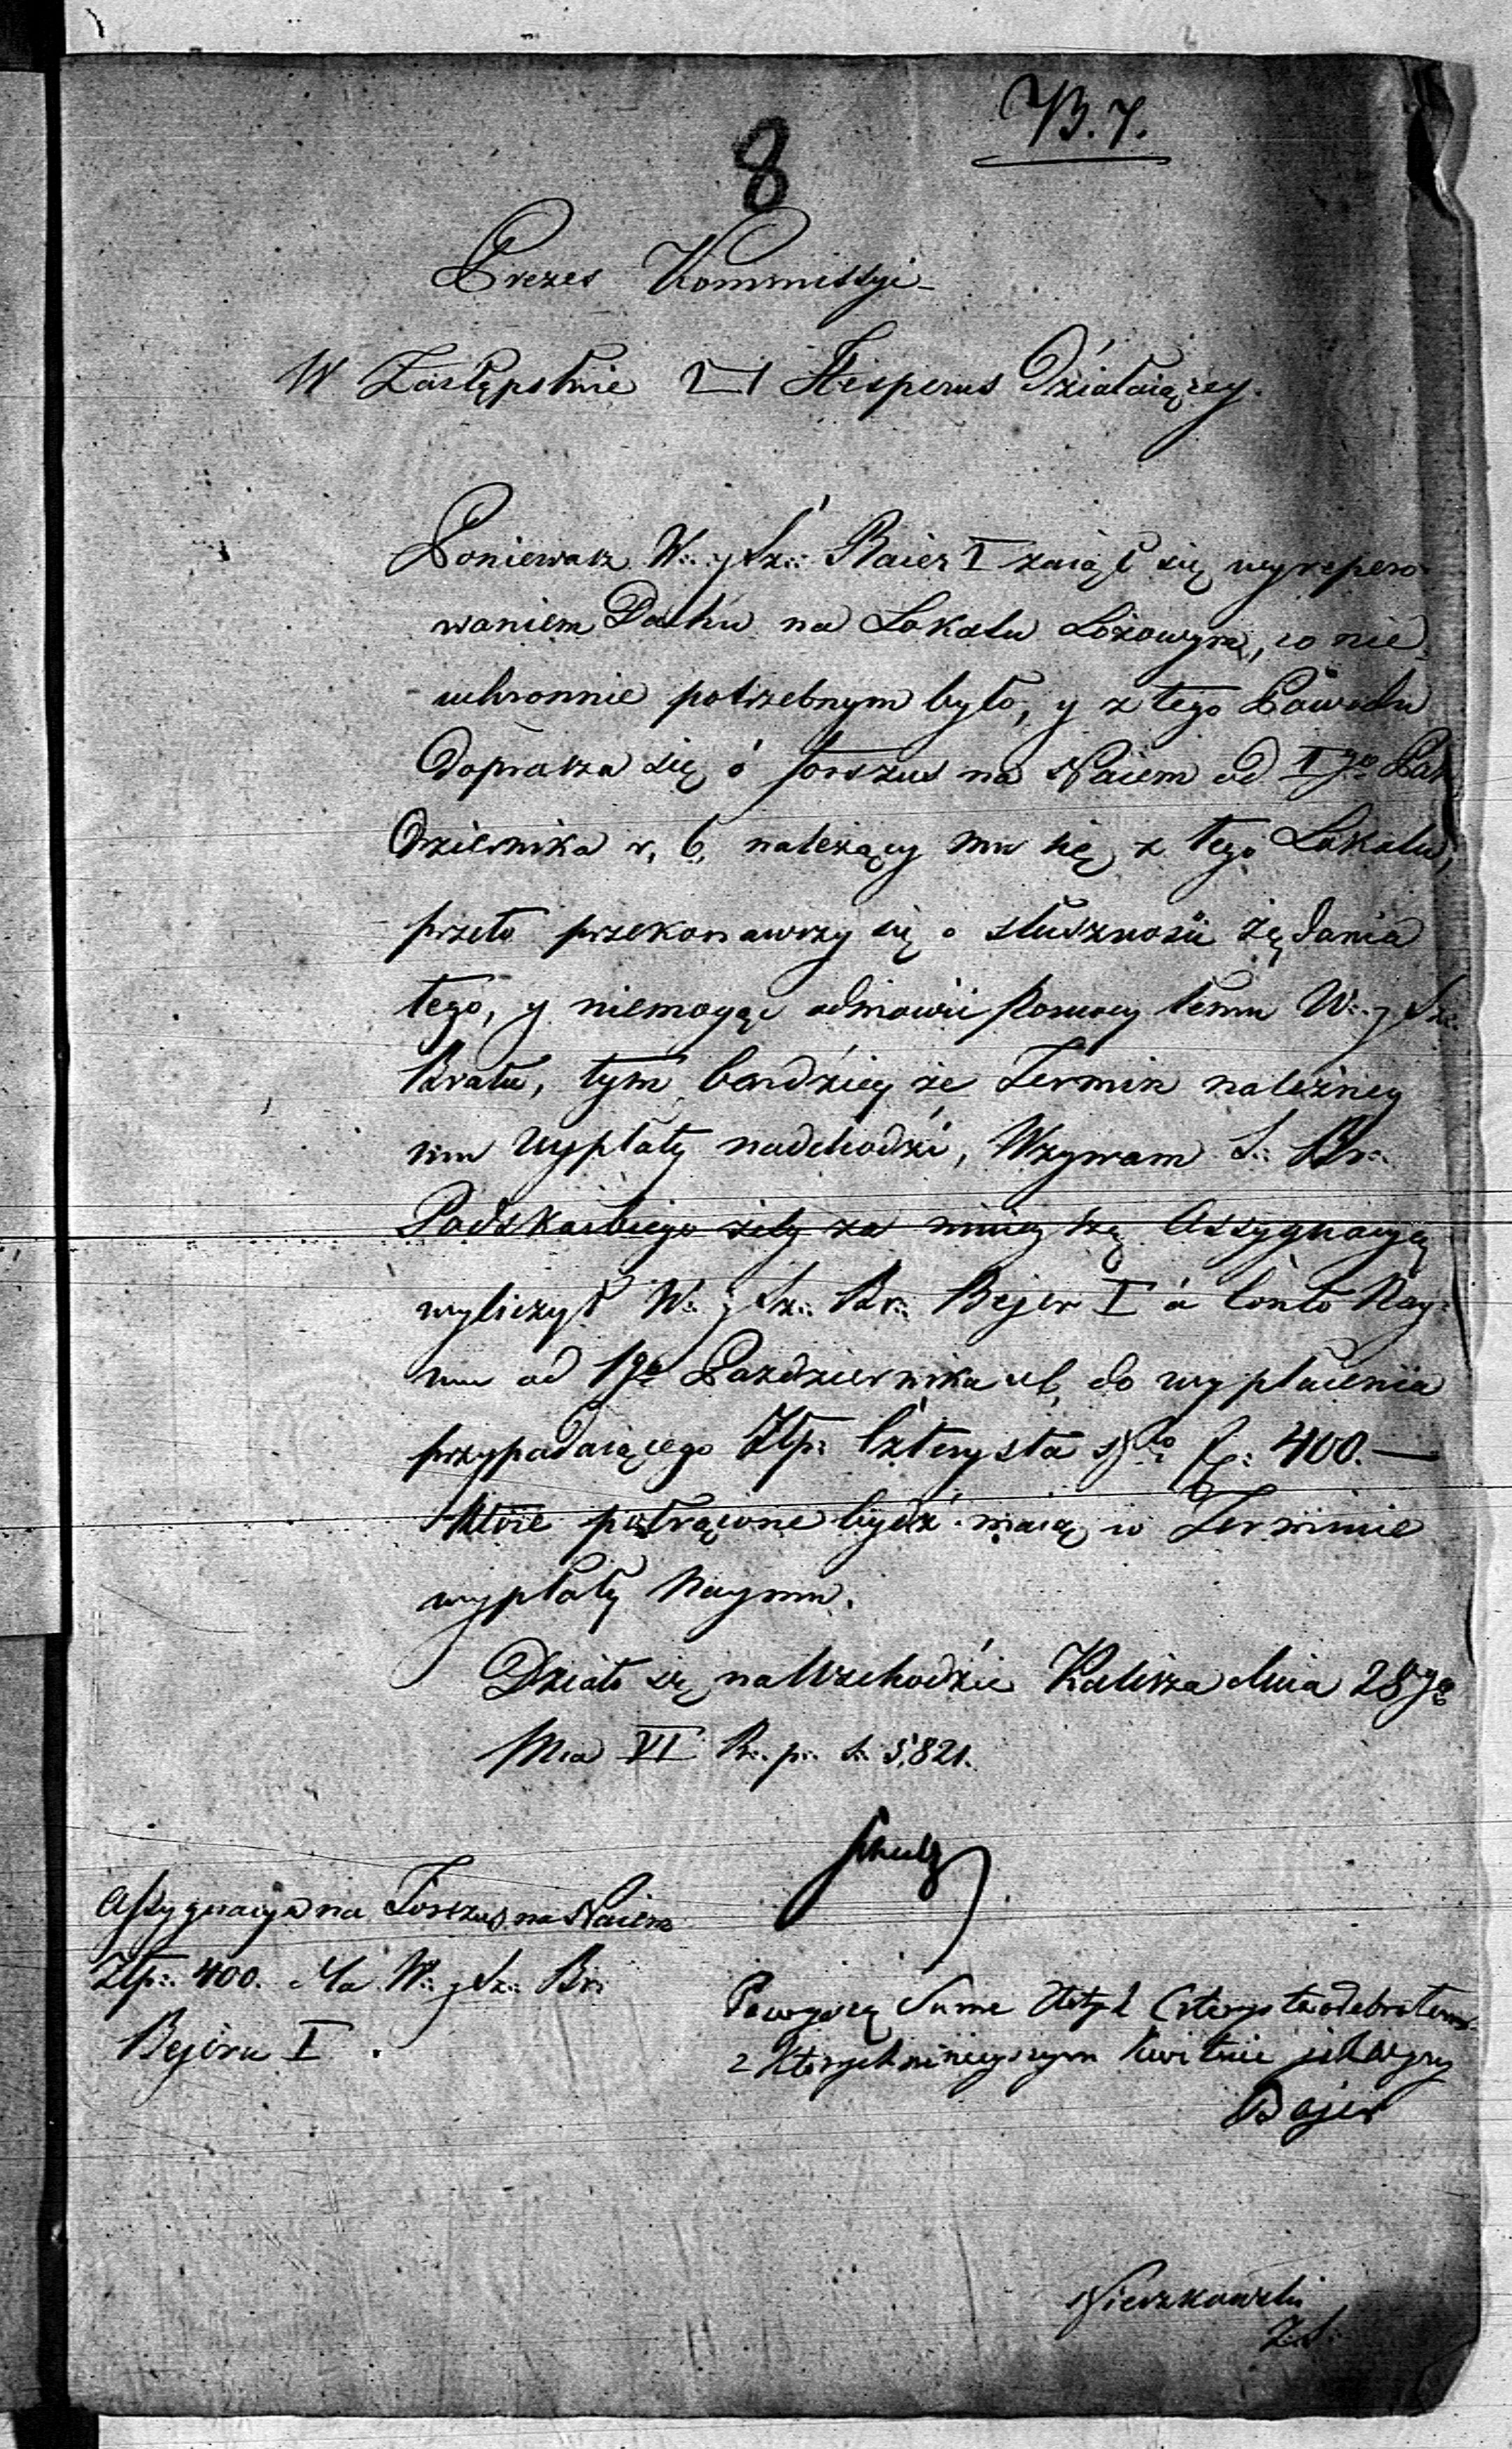 B. 7.
8
Prezes Kommissyi
W Zastępstwie Hesperus Działaiący.
Ponieważ W∴ y Sz∴ Baier I zaiął się wyrepero-
waniem Dachu na Lokalu Lożowym, co nie-
uchronnie potrzebnym było, y z tego Powodu
doprasza się ó forszus na Naiem od 1go Paź
dziernika r. b. należący mu się z tego Lokalu,
przeto przekonawszy się o słuszności żądania
tego, y niemogąc odmówić pomocy temu W∴ y Sz∴
Bratu, tym bardziey że Termin należney
mu wypłaty nadchodzi, Wzywam S∴ Br∴
Podskarbiego żeby za ninieyszą Assygnacyą
wyliczył W∴ y Sz∴ Br∴ Bejer I á Conto Nay-
mu od 1go Października rb. do wypłacenia
przypadaiącego Złp: Czterysta No fp: 400.—
które potrącone bydź maią w Terminie
wypłaty Naymu.
Działo się na Wschodzie Kalisza dnia 28go
Mca VI R∴ p∴ ś∴ 5,821.
Schulz
Assygnacya na Forszus na Naiem
Złp∴ 400. dla W∴ y Sz∴ Br∴
Bejera I.
Powyższą Sume Złotych Czterysta odebrałem
z których ninieyszym kwituie
Bajer
Nieszkowski
Z. S.